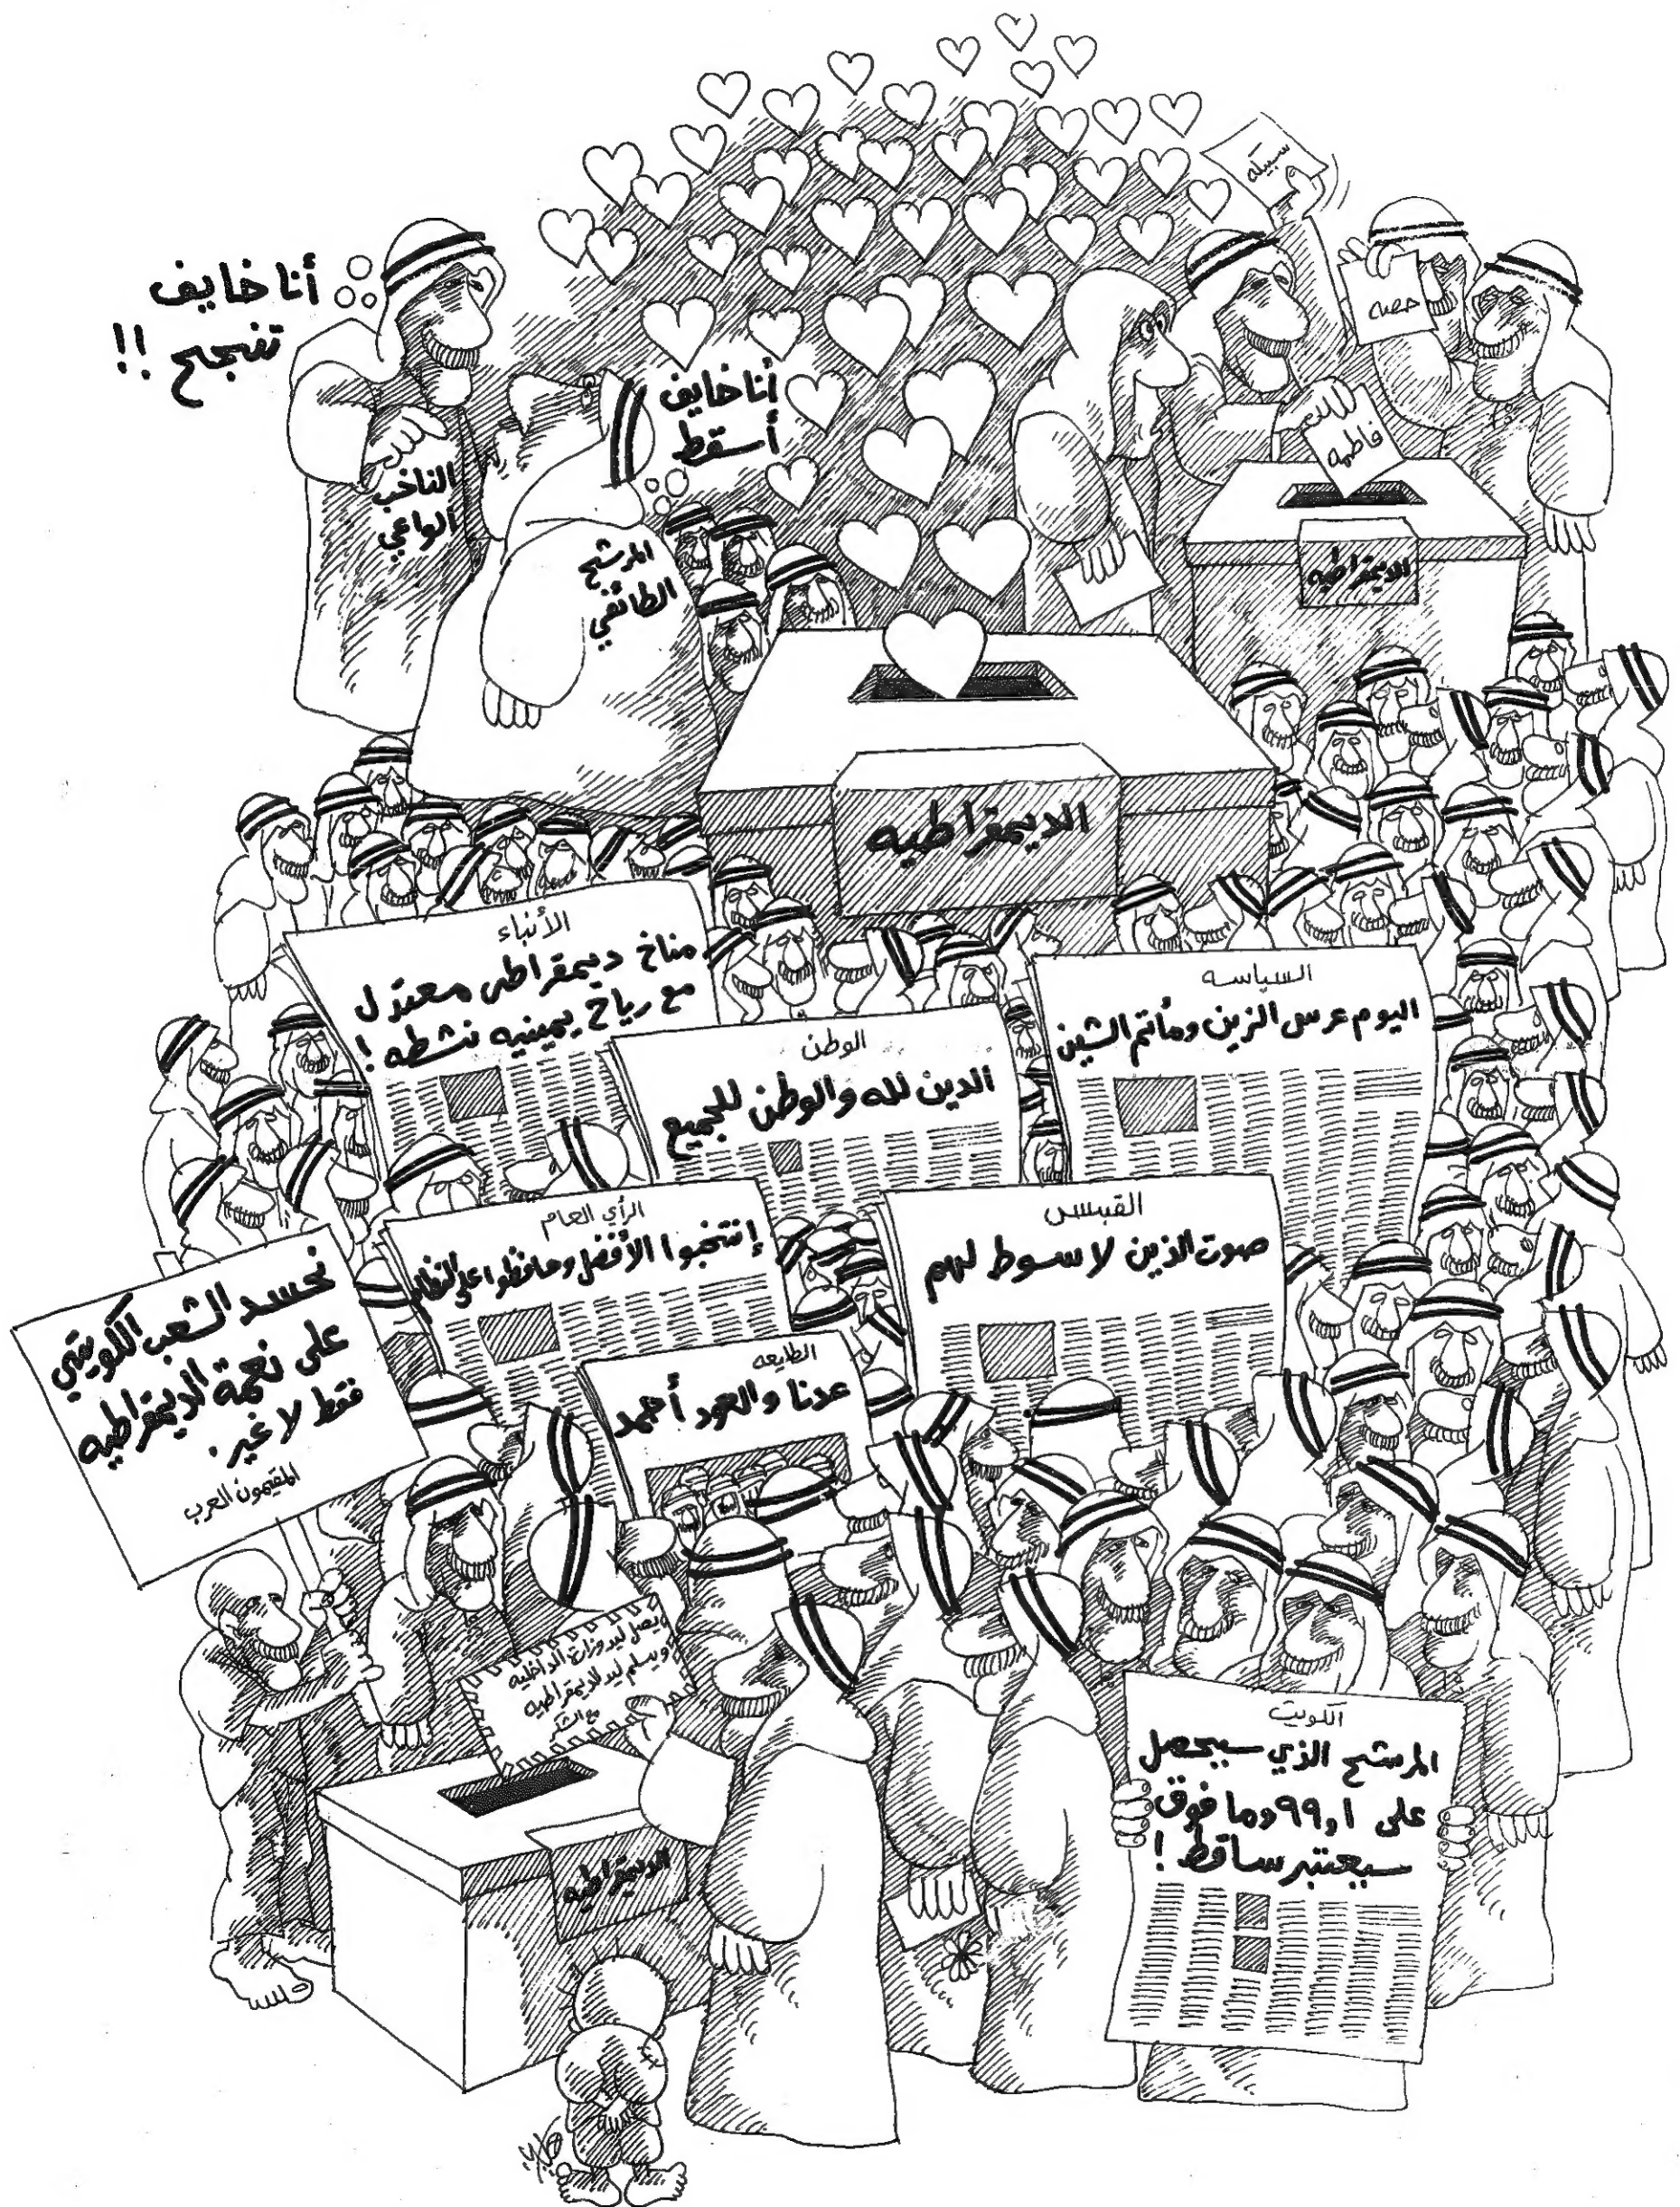 سبيكه
حصه
فاطمه
الديمقراطيه
أنا خايف
تنجح !!
الناخب
الواعي
أنا خايف
أسقط
المرشح
الطائفي
الديمقراطيه
الأنباء
مناخ ديمقراطي معتدل
مع رياح يمينيه نشطه !
السياسه
اليوم عرس الزين ومأتم الشين
الوطن
الدين لله والوطن للجميع
الرأي العام
إنتخبوا الأفضل وحافظوا علي النظام
القبس
صوت الذين لا سوط لهم
الطليعه
عدنا والعود أحمد
نحسد الشعب الكويتي
على نعمة الديمقراطيه
فقط لا غير .
المقيمون العرب
يصل ليد وزارة الداخليه
ويسلم ليد الديمقراطيه
مع الشكر
الديمقراطيه
الكويت
المرشح الذي سيحصل
على ٩٩,١ وما فوق
سيعتبر ساقط !
ناجي